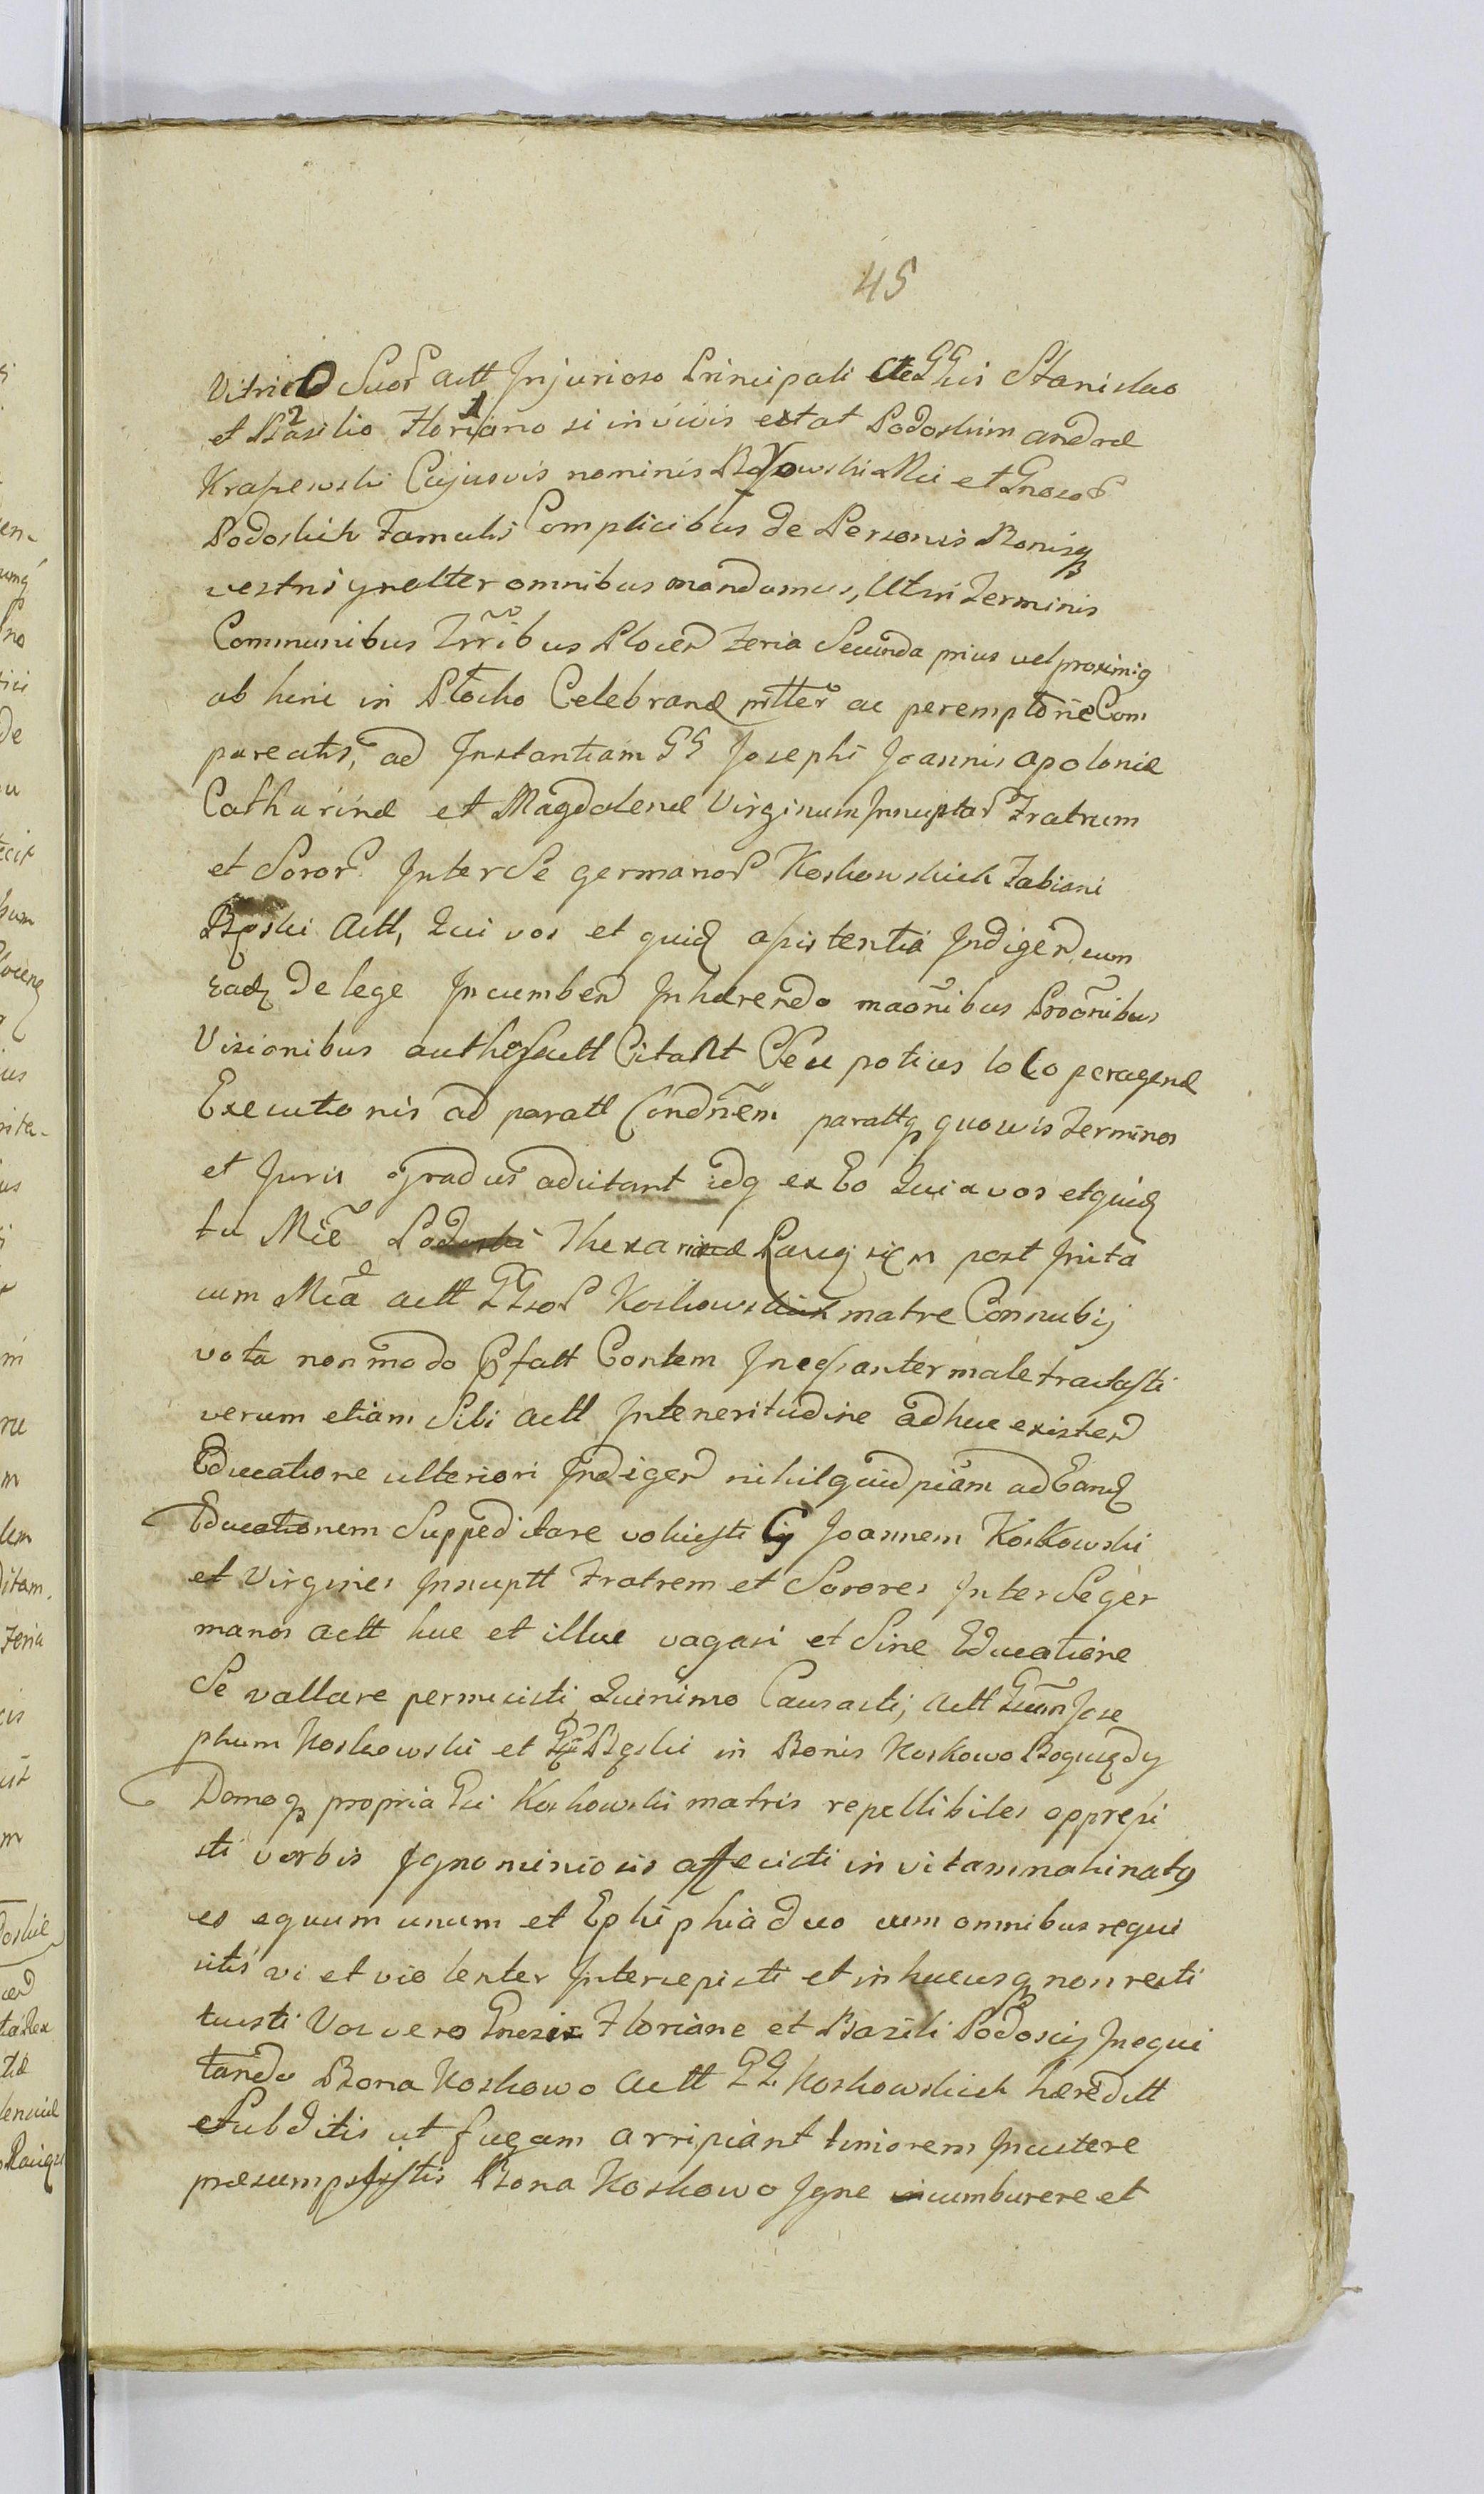 45
Vitrico Suor Actt Injurioso Principali Ac GGis Stanislao
et Basilio 2 Floriano 1 si in vivis extat Podoskim Andrae
Krajewski Cujusvis nominis Rossowski Mci et Gnosor
Podoskich Famulis Complicibus de Personis Bonisq
vestris gnalter omnibus mandamus, Ut in Terminis
Communibus Trribus Plocen Feria Secunda prius vel proximiq
ab hinc in Plocko Celebrand pntter ac peremptorie Com
pareatis, ad Instantiam GG Josephi Joannis Apoloniae
Catharinae et Magdalenae Virginum Innuptar Fratrum
et Soror Inter Se germanor Koskowskich Fabiani
Bęski Actt, Qui vos et quid assistentia Indigen cum
eadq De lege Incumben Inhaerendo maonibus Proonibus
Visionibus auth Citant Seu potius loco peragend
Executionis ad paratt Condnem parattq quovis Terminos
et Juris gradus adcitant idq ex Eo Quia vos et quid
tu Mce Podoski post Inita
cum Mca actt GGsor Koskowskich matre Connubij
vota non modo pfatt Contem Incessanter male tractasti
verum etiam Sibi actt In teneritudine adhuc existen
Educatione ulteriori Indigen nihil quidpiam ad Eand
Educationem Suppeditare voluisti Joannem Koskowski
et Virgines Innuptt Fratrem et Sorores Inter Se ger
manos actt huc et illuc vagari et Sine Educatione
Se vallare permisisti, Quinimo Causasti, actt Gnum Jose
phum Koskowski et Bęski in Bonis Koskowo Boguędy
Domoq propria Gi Koskowski matris repellibiles oppressi
sti verbis Ignominiosis affecisti in vitam machinatq
es equum unum et Ephiphia duo cum omnibus requi
sitis vi et violenter Intercepisti et in hucusq non resti
tuisti Vos vero Gnosi Floriane et Basili Podoscij Inequi
tando Bona Koskowo Actt GG. Koskowskich haereditt
Subditis ut fugam arripiant timorem Incutere
praesumpsistis Bona Koskowo Igne cumburere et